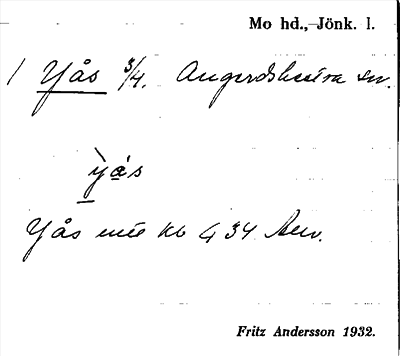 Mo hd., Jönk. l.
1 Yås 3/4. Angerdshestra sn.
ỳås
Yås
434
Fritz Andersson 1932.